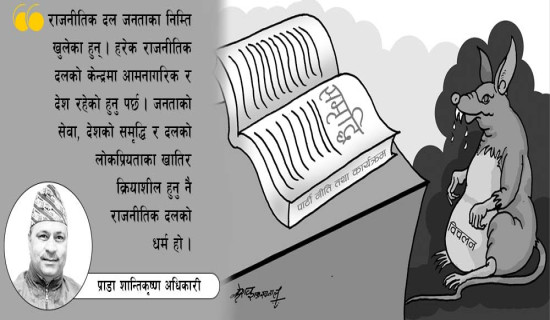 राजनीतिक दल जनताका निम्ति
खुलेका हुन् । हरेक राजनीतिक
दलको केन्द्रमा आमनागरिक र
देश रहेको हुनु पर्छ । जनताको
सेवा, देशको समृद्धि र दलको
लोकप्रियताका खातिर
क्रियाशील हुनु नै
राजनीतिक दलको
धर्म हो ।
प्राडा शान्तिकृष्ण अधिकारी
समृद्धि
पार्टी नीति तथा कार्यक्रम
विचलन